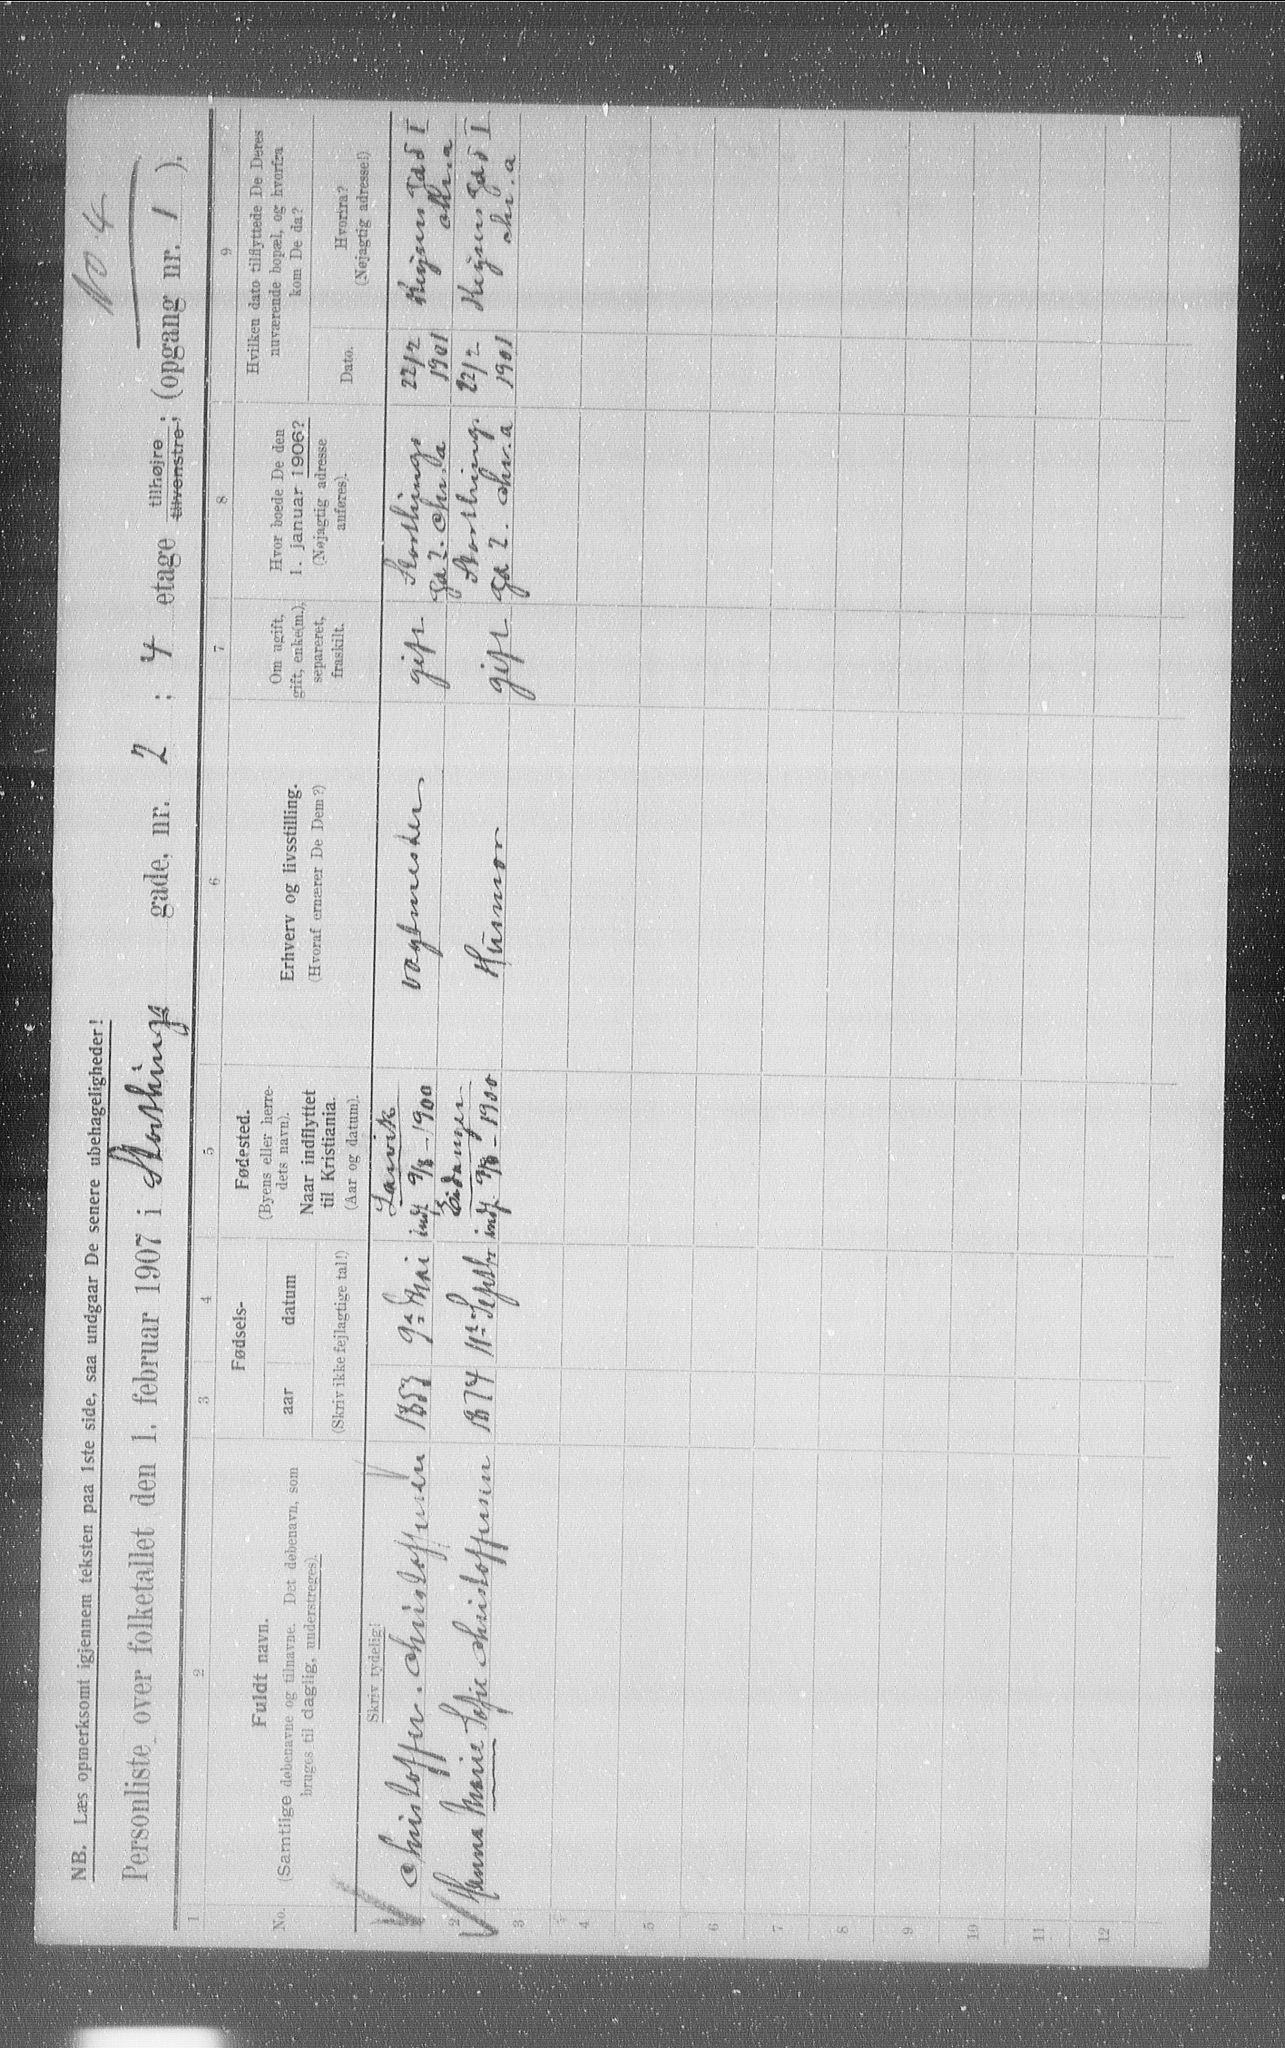 No. 4
NB. Læs opmerksomt igjennem teksten paa 1ste side, saa undgaar De senere ubehageligheder!
Personliste over folketallet den 1. februar 1907 i Storthings gade, nr. 2 ; 4 etage tilhøjre ; (opgang nr. 1 ).
tilvenstre
1 2 3 4 5 6 7 8 9
No.
Fuldt navn.
(Samtlige døbenavne og tilnavne. Det døbenavn, som
bruges til daglig, understreges).
Skriv tydelig!
Fødsels-
aar datum
(Skriv ikke fejlagtige tal!)
Fødested.
(Byens eller herre-
dets navn).
Naar indflyttet
til Kristiania.
(Aar og datum).
Erhverv og livsstilling.
(Hvoraf ernærer De Dem?)
Om ugift,
gift, enke(m.),
separeret,
fraskilt.
Hvor boede De den
1. januar 1906?
(Nøjagtig adresse
anføres).
Hvilken dato tilflyttede De Deres
nuværende bopæl, og hvorfra
kom De da?
Dato.
Hvorfra?
(Nøjagtig adresse!)
Christoffer Christoffersen 1853 9de Mai Larvik
indf. 9/8 - 1900
vagtmester gift Storthings
ga 2. Chr.a
22/2
1901
Chr.a
2 Hanna Marie Sofie Christoffersen 1874 11te Septbr Eidanger
indf. 9/8 - 1900
Husmor gift Storthing.
ga 2. Chr.a
22/2
1901
Chr.a
3
4
5
6
7
8
9
10
11
12